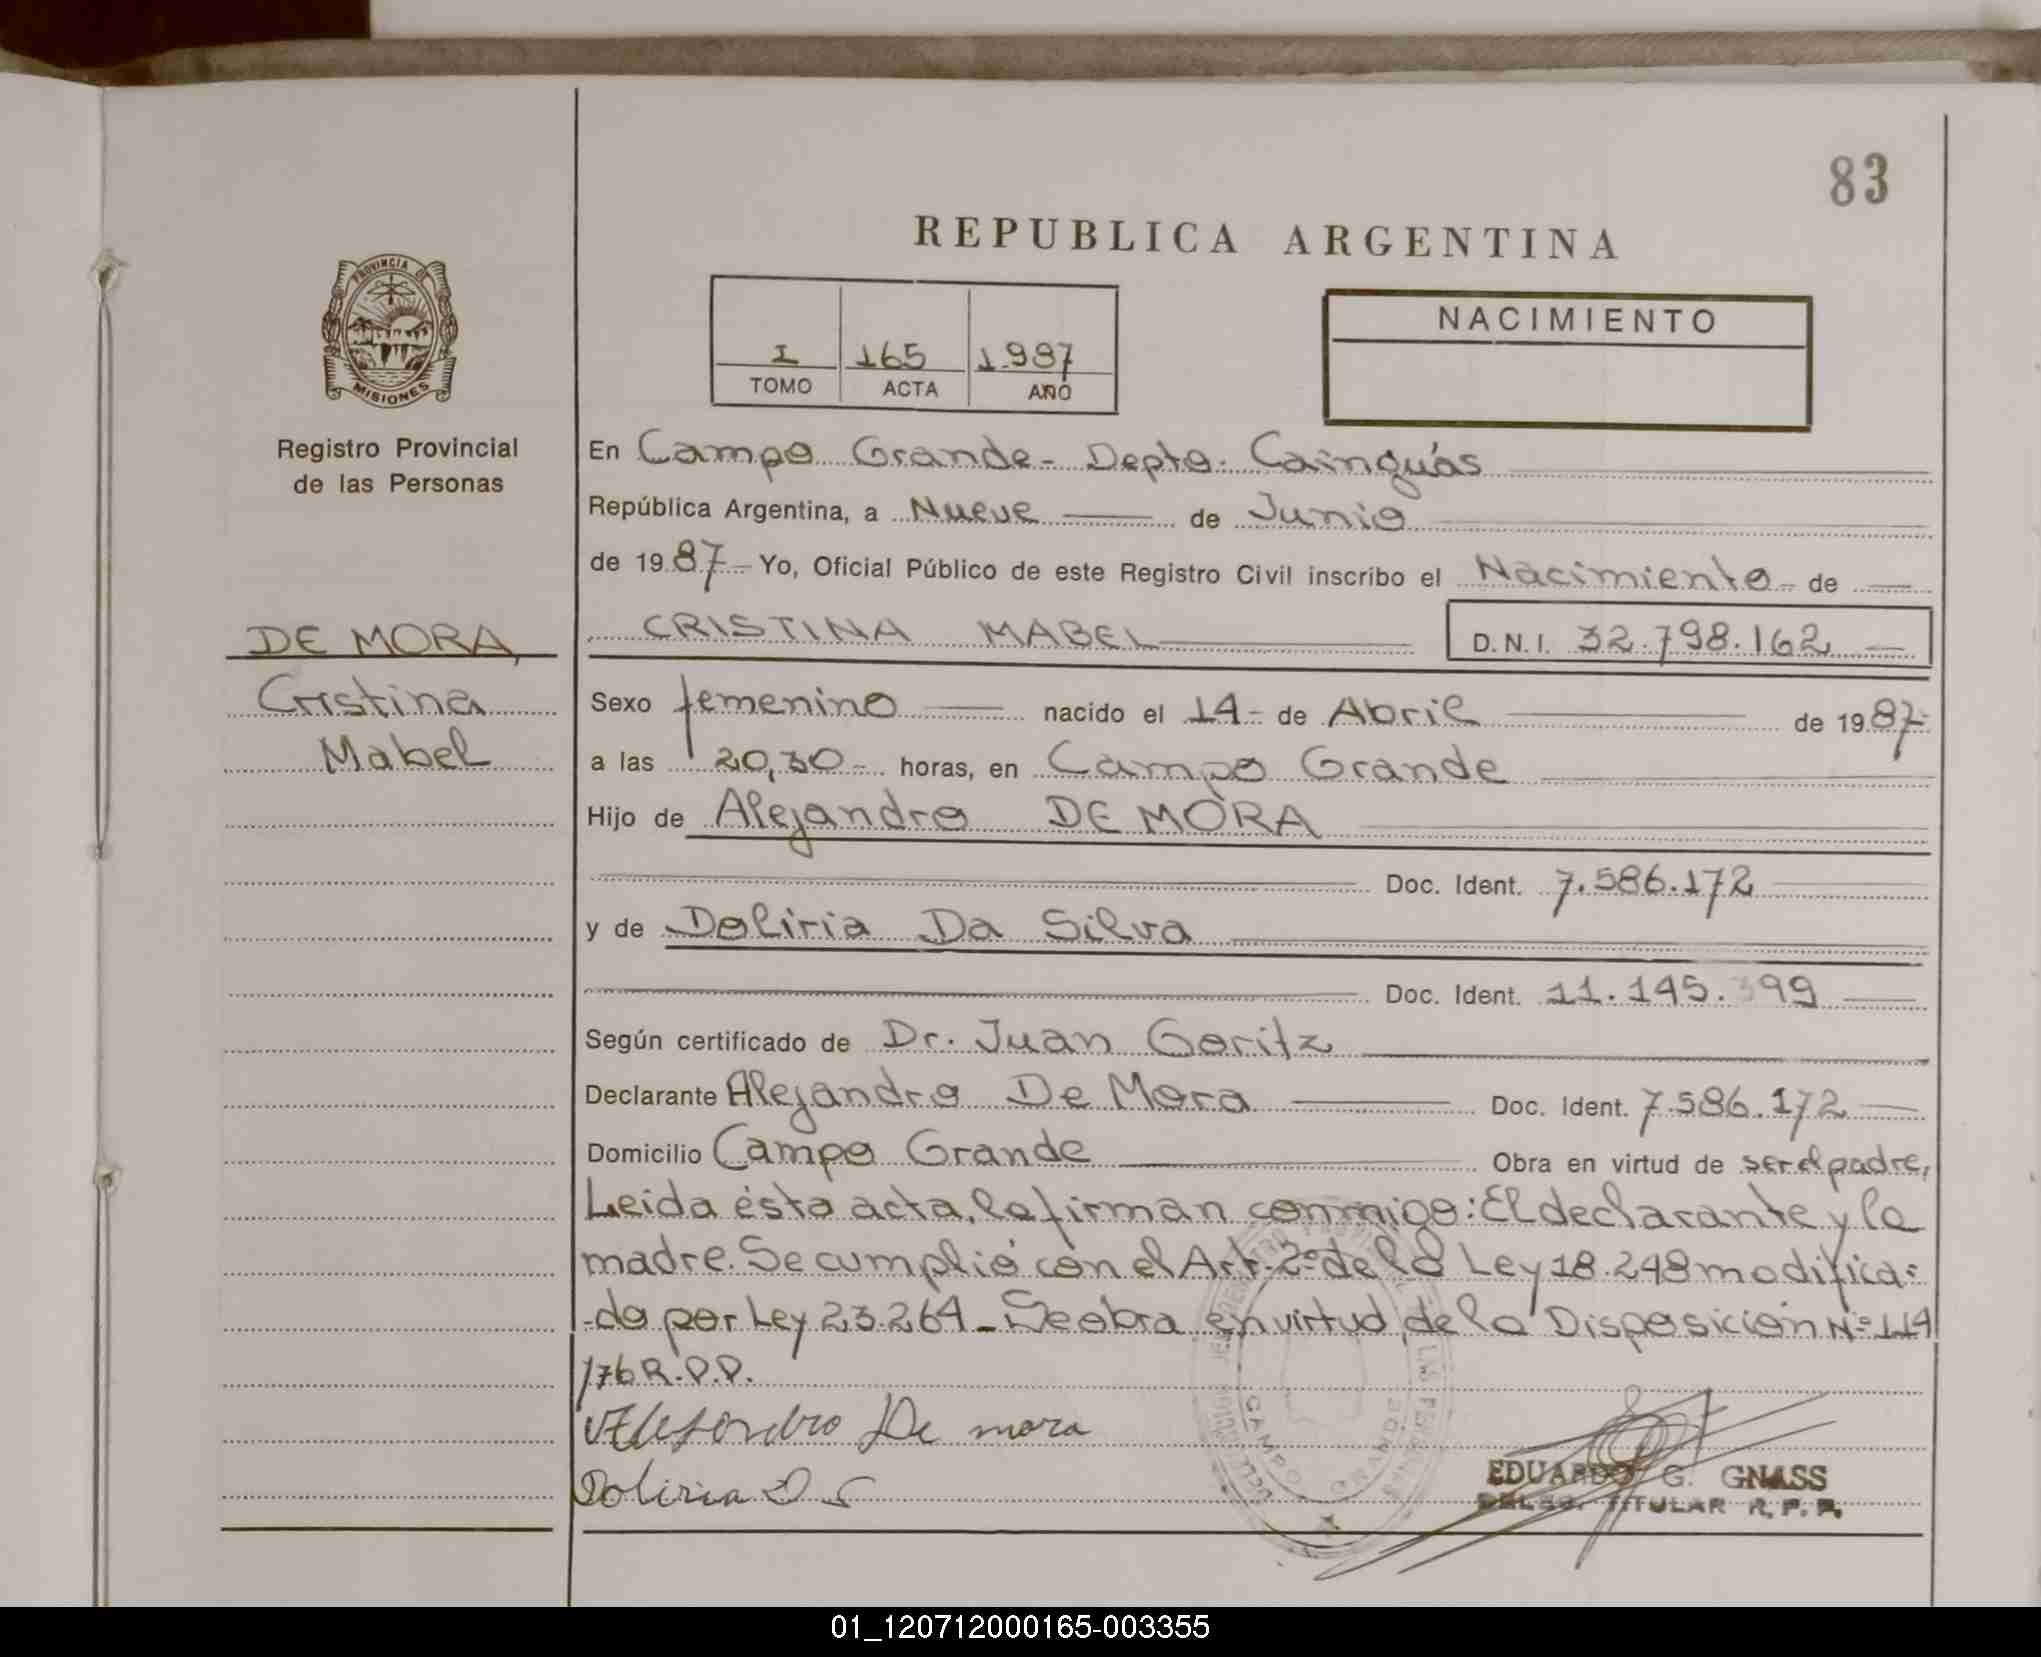 83
REPUBLICA ARGENTINA
PROVINCIA DE
MISIONES
Registro Provincial
de las Personas
I 165 1.987
TOMO ACTA AÑO
NACIMIENTO
En Campo Grande- Depto. Cainguás
República Argentina, a Nueve de Junio
de 1987- Yo, Oficial Público de este Registro Civil inscribo el Nacimiento- de
DE MORA,
Cristina
Mabel
CRISTINA MABEL
D.N.I. 32.798.162
Sexo femenino nacido el 14- de Abril de 1987-
a las 20,30- horas, en Campo Grande
Hijo de Alejandro DE MORA
Doc. Ident. 7.586.172
y de Doliria Da Silva
Doc. Ident. 11.145.399
Según certificado de Dr. Juan Goritz
Declarante Alejandro De Mora Doc. Ident. 7.586.172
Domicilio Campo Grande Obra en virtud de ser el padre,
Leida ésta acta, la firman conmigo: El declarante y la
madre. Se cumplió con el Art. 2º de la Ley 18.248 modifica-
-da por Ley 23.264- Se obra en virtud de la Disposición Nº 114
/76 R.P.P.
Alejandro De mora
Doliria D S
CAMPO GRANDE
EDUARDO G. GNASS
DELEG. TITULAR R.P.P.
01_120712000165-003355